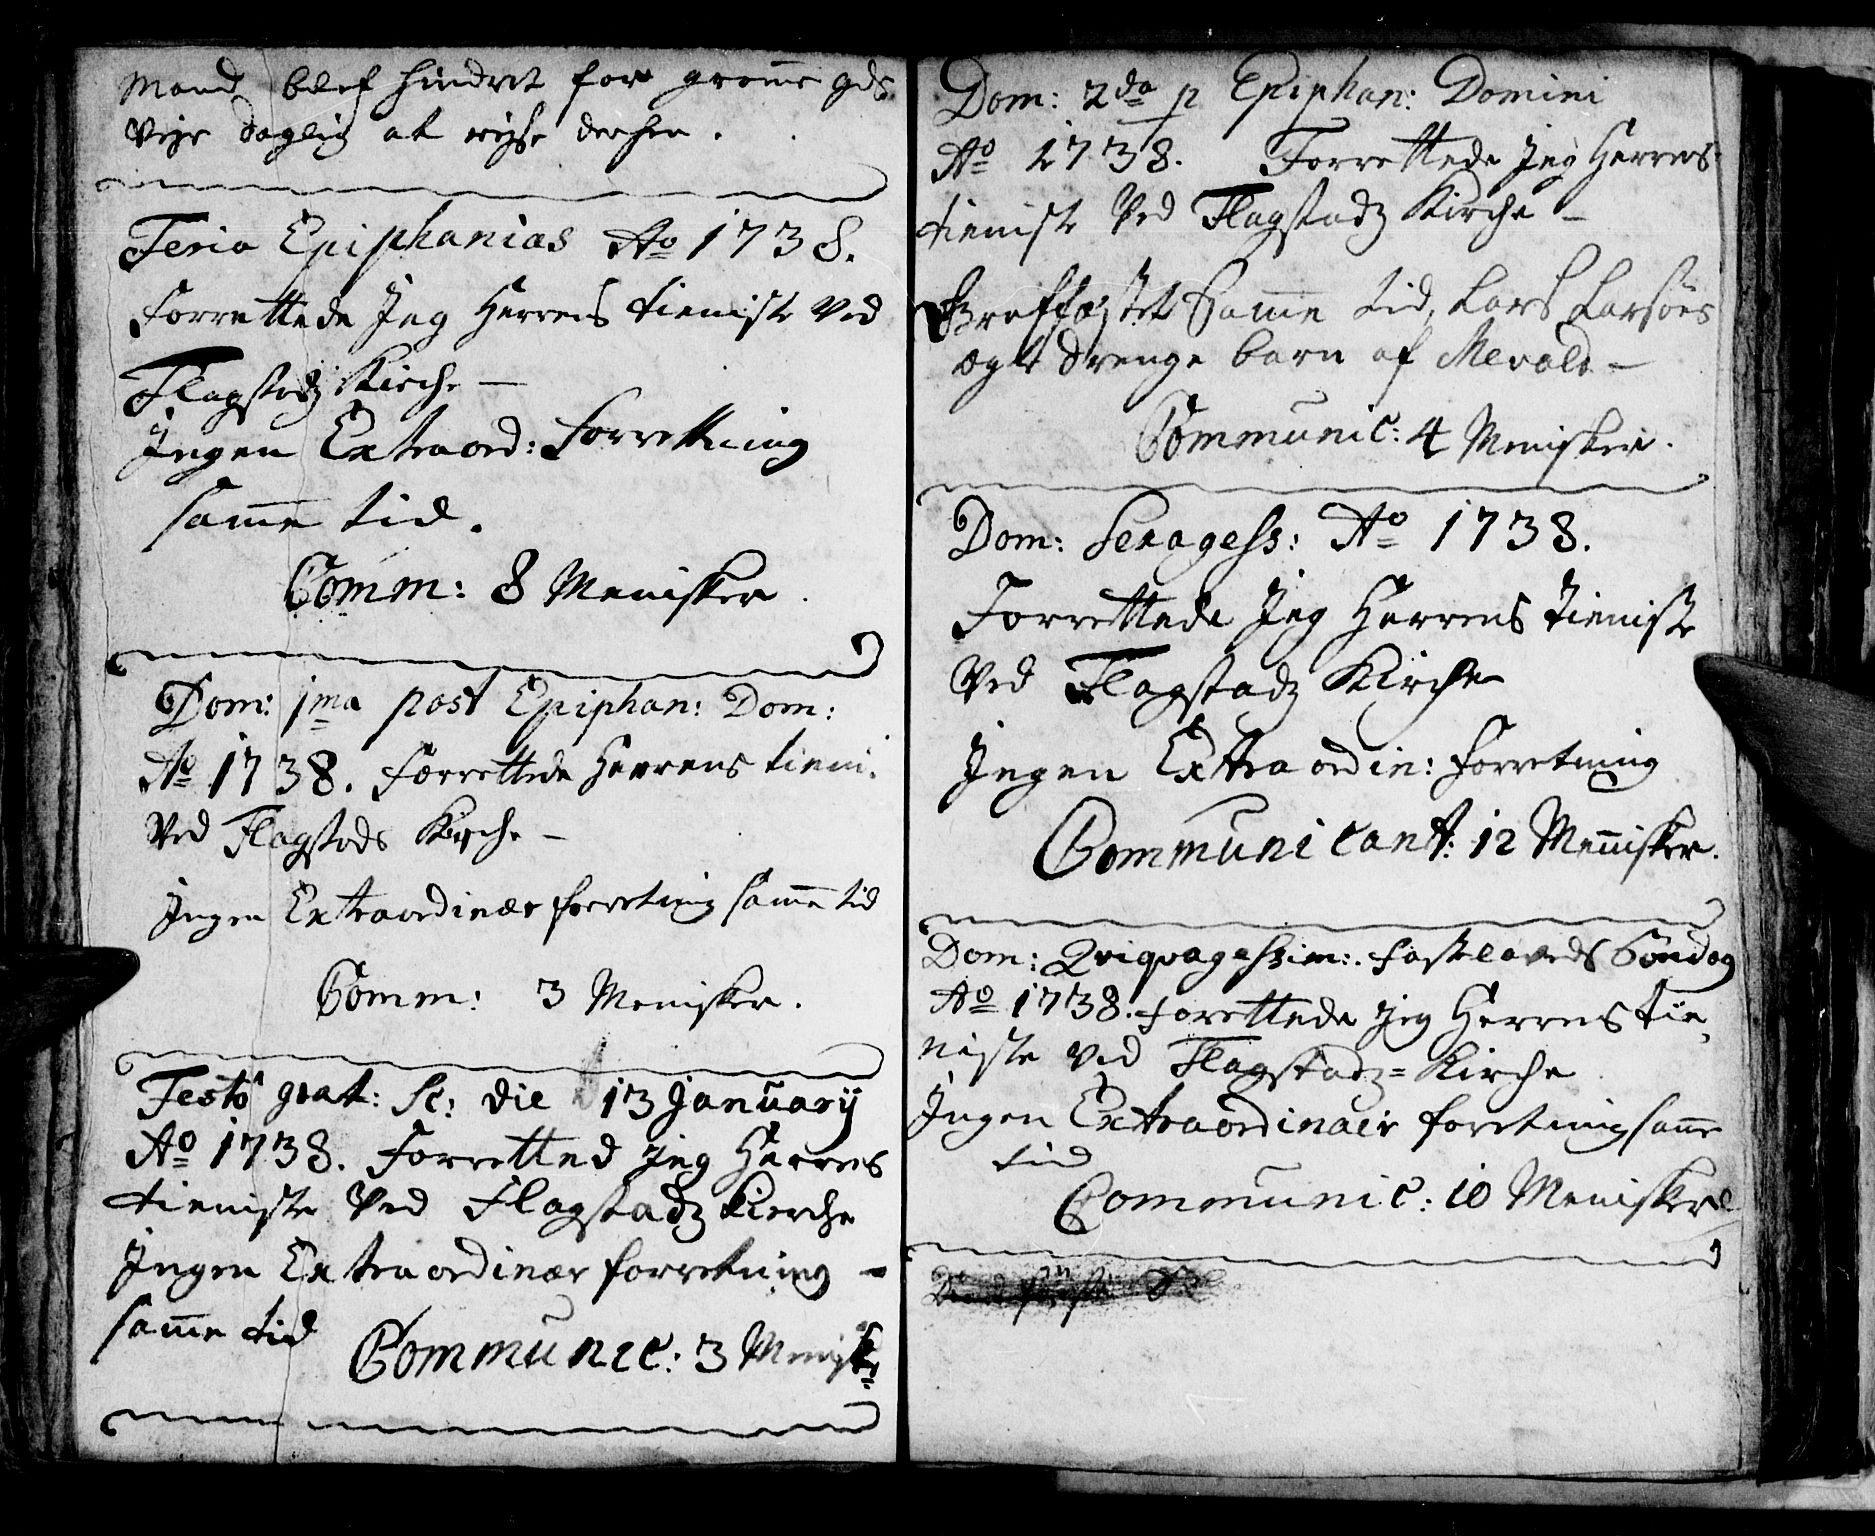 Mand blef hindret for gromme Gds
Veje daglig at rejse derhen.
Feria Epiphanias Ao 1738.
Forrettede Jeg Herrens tieniste Ved
Flagstadz Kirche —
Jngen Extraord: Forrettning
samme tid.
Comm: 8 Menisker.
Dom: 1ma post Epiphan: Dom:
Ao 1738. Forrettede Herrens tieni.
Ved Flagstads Kirche —
Jngen Extraordinær forretning samme tid
Comm: 3 Menisker.
Festo grat: Sc: die 13 January
Ao 1738. Forretted Jeg Herrens
tieniste Ved Flagstadz Kierche
Jngen Extraordinær forretning —
samme tid
Communic: 3 Menisk:
Dom: 2da p Epiphan: Domini
Ao 1738. Forrettede Jeg Herrens
tieniste Ved Flagstadz Kirche —
Bekræftet Samme tid, Lars Larsøns
ægte drenge barn af Mevold —
Communic: 4 Menisker.
Dom: Sexagess: Ao 1738.
Forrettede Jeg Herrens tieniste
Ved Flagstadz Kirche
Jngen Extraordin: forretning
Communicant: 12 Mennisker.
Dom: Qviqvagessim: fastelavnds Søndag
Ao 1738. forettede Jeg Herrens tie,
niste ved Flagstadz= Kirche
Jngen Extraordinair foretning samme
tid
Communic: 10 Menisker